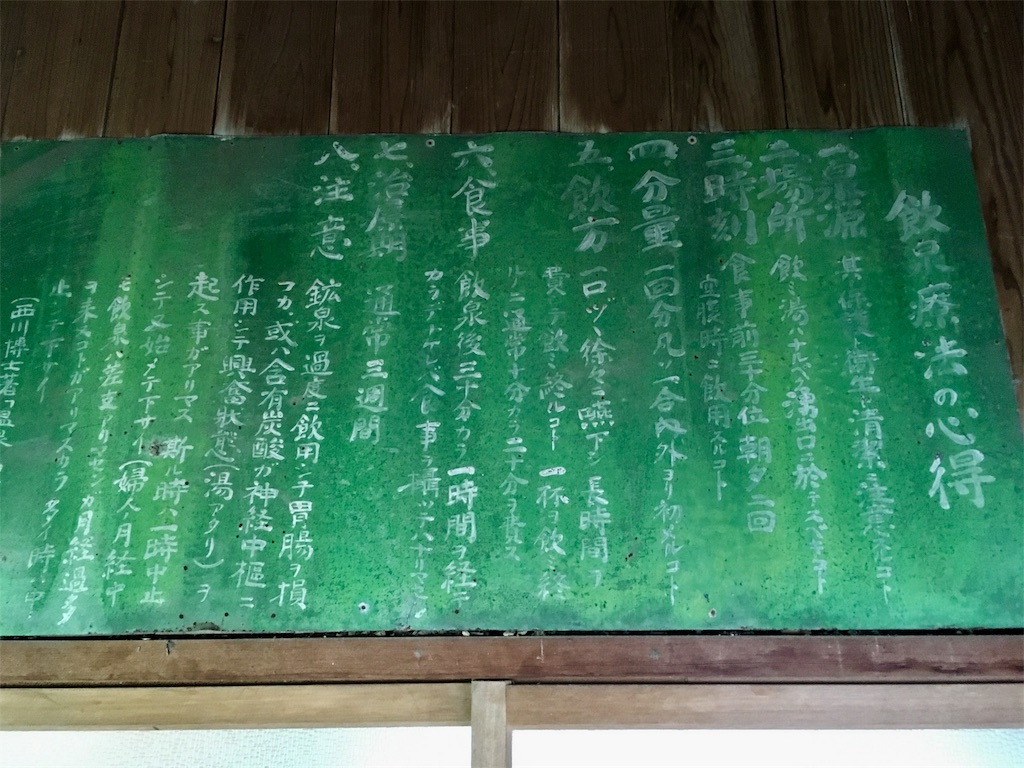 飲泉療法の心得
一、泉源 其保護ト衛生ト清潔ニ注意スルコト
二、場所 飲ミ湯ハナルベク湧出口ニ於テスベキコト
三、時刻 食事前三十分位朝夕二回
空腹時ニ飲用スルコト
四、分量 一回分凡ソ一合内外ヨリ初ムルコト
五、飲方 一口ヅヽ徐々ニ嚥下シ長時間ヲ
費ヤシテ飲ミ終ルコト 一杯ヲ飲ミ終
リニ通常十分カラ二十分ヲ費ス
六、食事 飲泉後三十分カラ一時間ヲ経テ
カラデナケレバ食事ヲ摂ッテハナリマセン
七、治効期 通常三週間
八、注意 鉱泉ヲ過度ニ飲用シテ胃腸ヲ損
フカ、或ハ含有炭酸ガ神経中樞ニ
作用シテ興奮状態(湯アタリ)ヲ
起ス事ガアリマス 斯ル時ハ一時中止
シテ又始メテ下サイ(婦人月経中
モ飲泉ハ差支アリマセンガ月経過多
ヲ来スコトガアリマスカラ 多タイ時ハ中
止シテ下サイ
(西川博士著「温泉